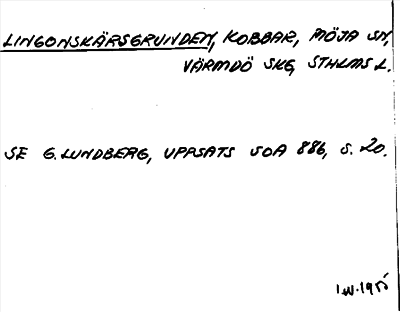 LINGONSKÄRSGRUNDEN, KOBBAR, MÖJA SN,
VÄRMDÖ SKG, STHLMS L.
SE G. LUNDBERG, UPPSATS SOA 886, S. 20.
I.W. 1955